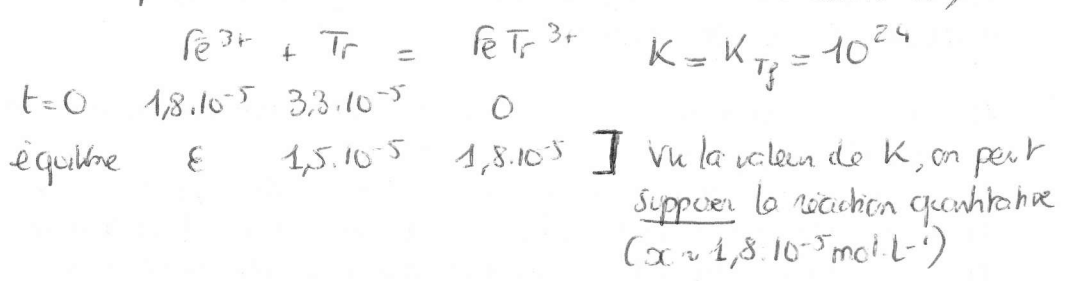 Fe³⁺ + Tr = FeTr³⁺ K = K_Tf = 10²⁴
t=0 1,8.10⁻⁵ 3,3.10⁻⁵ 0
équilibre ε 1,5.10⁻⁵ 1,8.10⁻⁵ ] Vu la valeur de K, on peut
supposer la réaction quantitative
(x ~ 1,8.10⁻⁵ mol.L⁻¹)